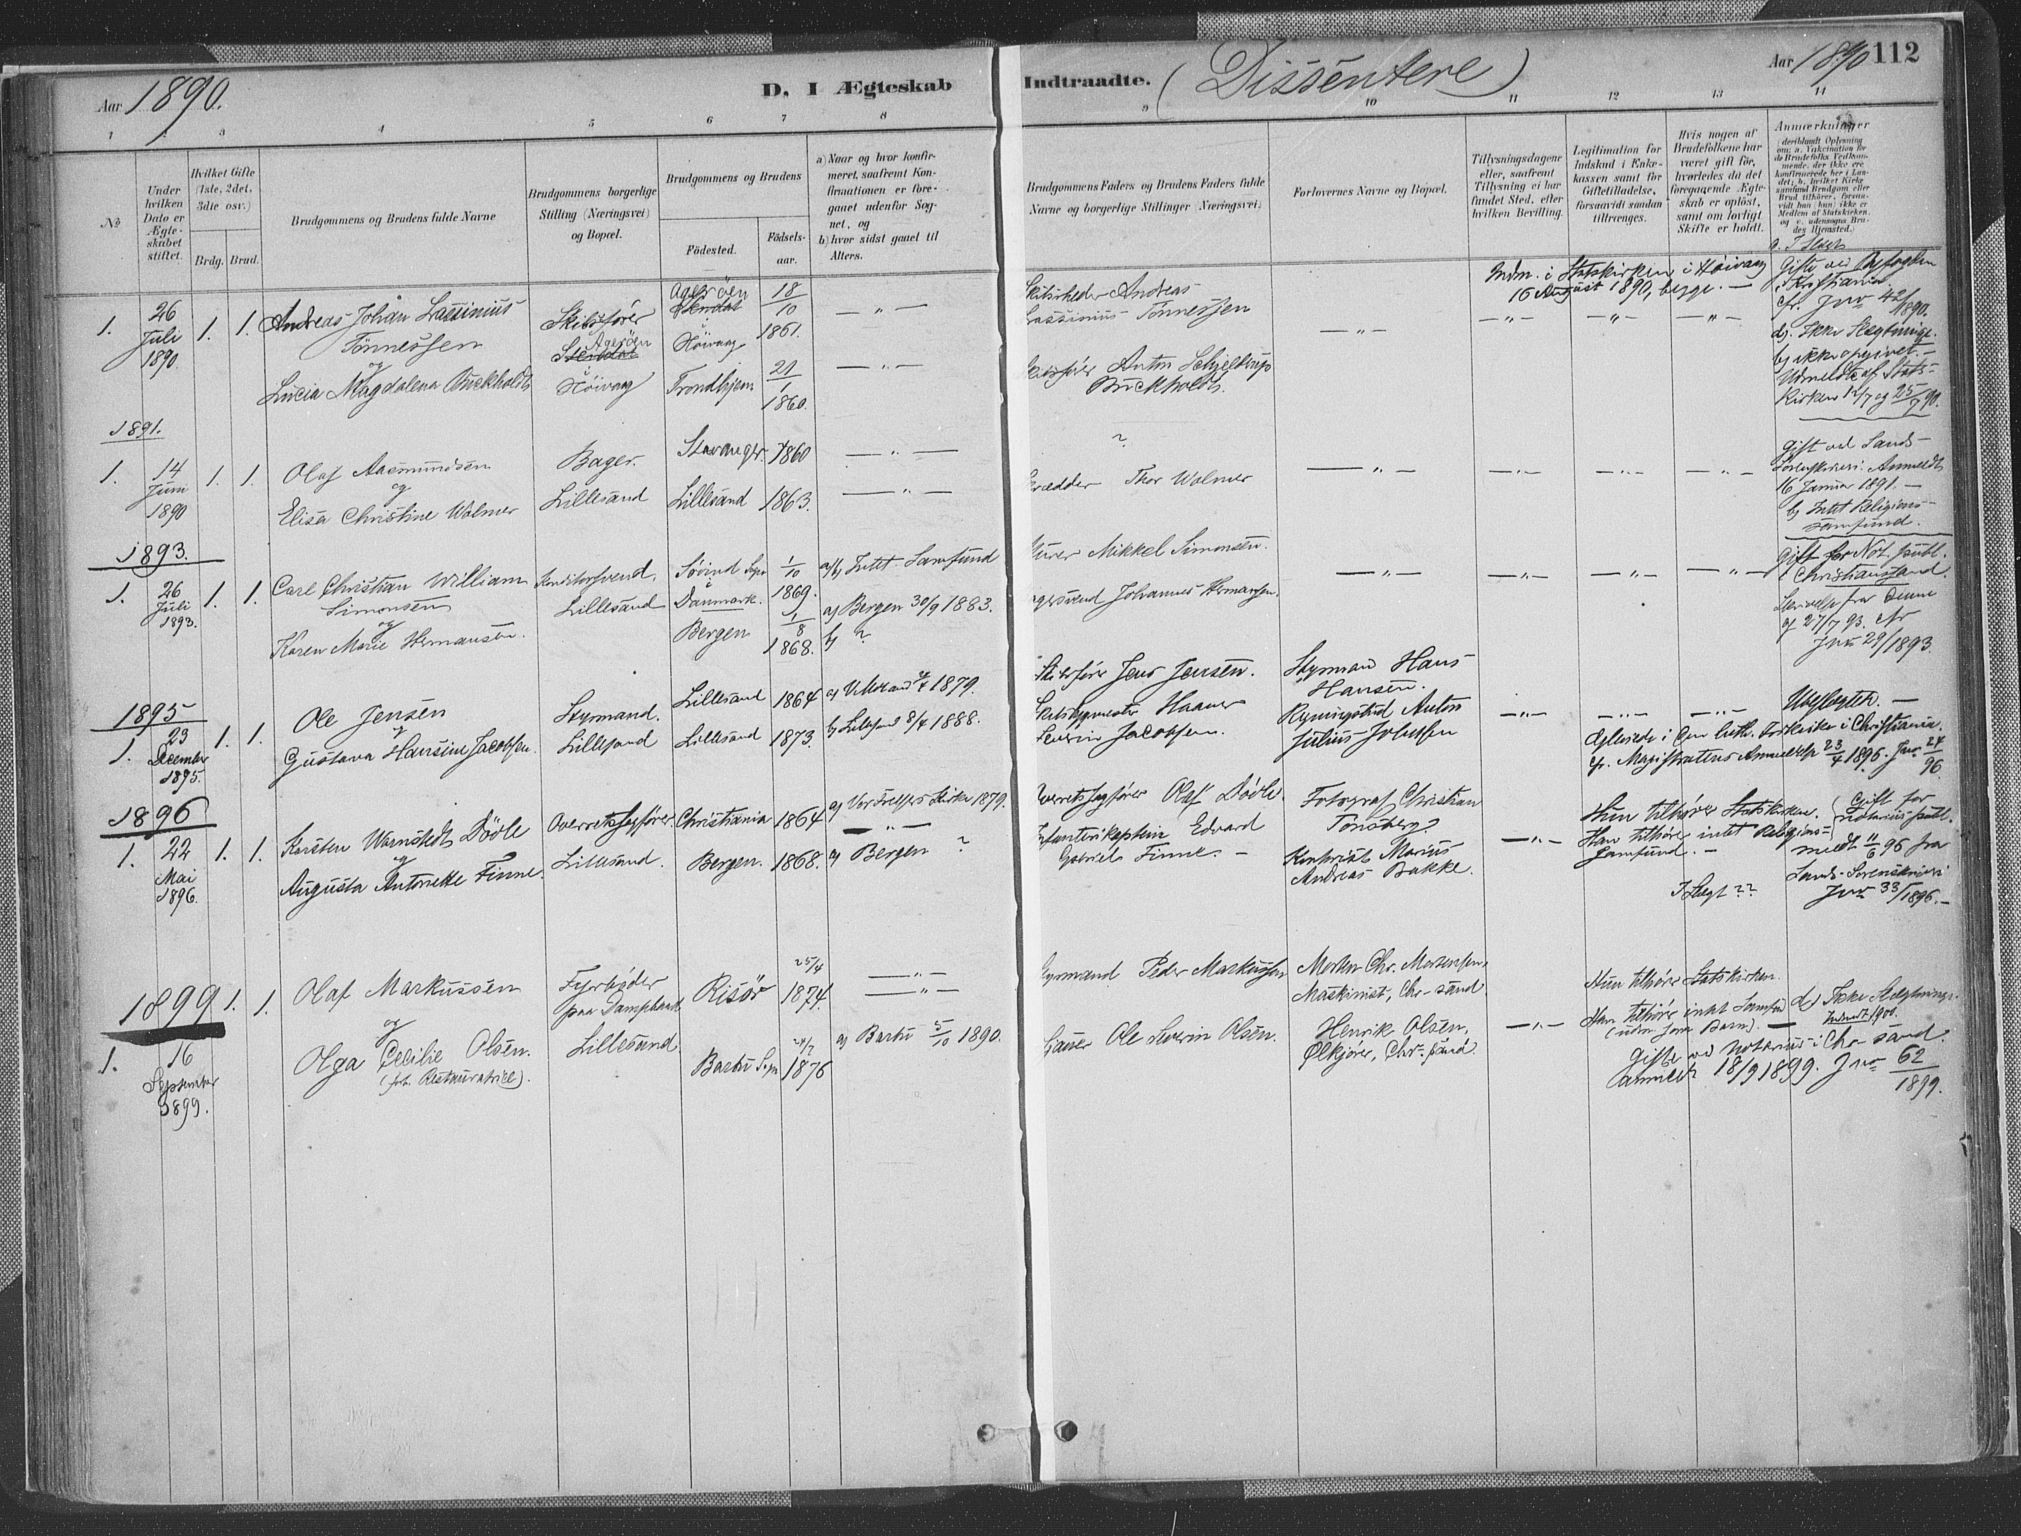 Aar 1890.
D. I Ægteskab Indtraadte. (Dissentere)
Aar 1890 112
1 2 3 4 5 6 7 8 9 10 11 12 13 14
No
Under hvilken Dato er Ægteskabet stiftet.
Hvilket Gifte (1ste, 2det, 3dte osv.)
Brdg. Brud.
Brudgommens og Brudens fulde Navne
Brudgommens borgerlige Stilling (Næringsvei) og Bopæl.
Brudgommens og Brudens
Fødested.
Fødselsaar.
a) Naar og hvor konfirmeret, saafremt Konfirmationen er foregaaet udenfor Sognet, og
b) hvor sidst gaaet til Alters.
Brudgommens Faders og Brudens Faders fulde Navne og borgerlige Stillinger (Næringsvei)
Forlovernes Navne og Bopæl.
Tillysningsdagene eller, saafremt Tillysning ei har fundet Sted, efter hvilken Bevilling.
Legitimation for Indskud i Enkekassen samt for Giftetilladelse, forsaavidt saadan tiltrænges.
Hvis nogen af Brudefolkene har været gift før, hvorledes da det foregaaende Ægteskab er opløst, samt om lovligt Skifte er holdt.
Anmærkninger
1. 26 Juli 1890 1. 1.
Andreas Johan Lassinius Tønnessen
og
Lucia Magdalena Buckholdt
Skibsfører
Agerøen
Høivaag
Agerøen
i Høivaag
18/10 1861.
Trondhjem 21/1 1860.
— „ —
— „ —
Andreas Lassinius Tønnessen
Anton Schjeldrup Buckholdt
— „ —
Indm. i Statskirken i Høivaag
16 August 1890, begge. —
— „ — — „ — — „ —
Gifte ved Byfogden
i Kristiania
cfr. Jno 42/1890.
d) Ikke Slægtninge.
b) ikke opgivet. —
Udmeldte af Statskirken 12/7 og 25/7 90.
1891.
1. 14 Juni 1890 1. 1.
Olaf Aasmundsen
og
Elisa Christine Wolmer
Bager.
Lillesand
Stavanger. 1860
Lillesand 1863.
— „ —
— „ —
?
Thor Wolmer
— „ — — „ — — „ — — „ —
Gift ved Sandsorenskriveri. Anmeldt
16 Januar 1891. —
b) Intet Religionssamfund.
1893.
1. 26 Juli 1893. 1. 1.
Carl Christian William Simonsen
og
Karen Marie Hermansen.
Konditorsvend.
Lillesand
Søvind Sogn Danmark. 1/10 1869.
Bergen 1/8 1868.
a/b) Intet Samfund
a) Bergen 30/9 1883.
b) ?
Murer Mikkel Simonsen.
Johannes Hermansen.
— „ — — „ — — „ — — „ —
Gift for Not. publ.
i Christianssand.
Skrivelse fra denne
af 27/7 93. Cfr
Jno 29/1893.
1895
1. 23 December 1895. 1. 1.
Ole Jensen
og
Gustava Hansine Jacobsen.
Styrmand.
Lillesand
Lillesand 1864
Lillesand 1873.
1879.
8/4 1888.
Skibsfører Jens Jensen.
Haaver Severin Jacobsen.
Styrmand Hans Hansen.
Anton Julius
— „ — — „ — — „ —
Ubeslægtede. —
Ægteviede i Den luth. Frikirke i Christiania.
cfr. Magistratens Anmeldelse 23/4 1896. Jno 24/96.
1896
1. 22 Mai 1896. 1. 1.
Karsten Warnstedt Døvle
og
Augusta Antoinette Finne.
Overretssagfører.
Lillesand.
Christiania 1864
Bergen. 1868.
a) Vor Frelsers Kirke 1879.
— „ —
a) Bergen ?
Overretssagfører Olaf Døvle.
Infanterikaptein Edvard Gabriel Finne. —
Fotograf Christian Tønsberg
Kontorist Marius Andreas Bakke.
— „ —
Hun tilhører Statskirken.
Han tilhører intet Religionssamfund. —
Gift for Notarius publ.
meldt 11/6 96 fra
Sands Sorenskriveri
Jno 33/1896. —
I Slægt ??
1899 1. 1.
1. 16 September 1899.
Olaf Markussen
og
Olga Cecilie Olsen.
(fhv. Restauratrice).
Fyrbøder
paa Dampbaad
Lillesand.
Risør 25/4 1874.
Barbu Sogn 24/7 1876
— „ —
— „ —
a) Barbu 5/10 1890.
Styrmand Peder Markussen
Ole Severin Olsen.
Morten Chr. Mortensen,
Maskinist, Chr-sand.
Henrik Olsen,
Ølkjører, Chr-sand.
— „ —
Hun tilhører Statskirken
Han tilhører intet Samfund
(uden som Barn). —
d) Ikke Slægtninge.
Gifte ved Notarius i Chr sand.
anmeldt 18/9 1899. Jno 62/1899.